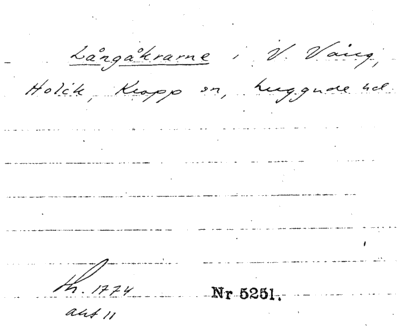 Långåkrarne i V. Vång,
Holik, Kropp sn, Luggude hd.
th. 1774
akt 11
Nr 5251.